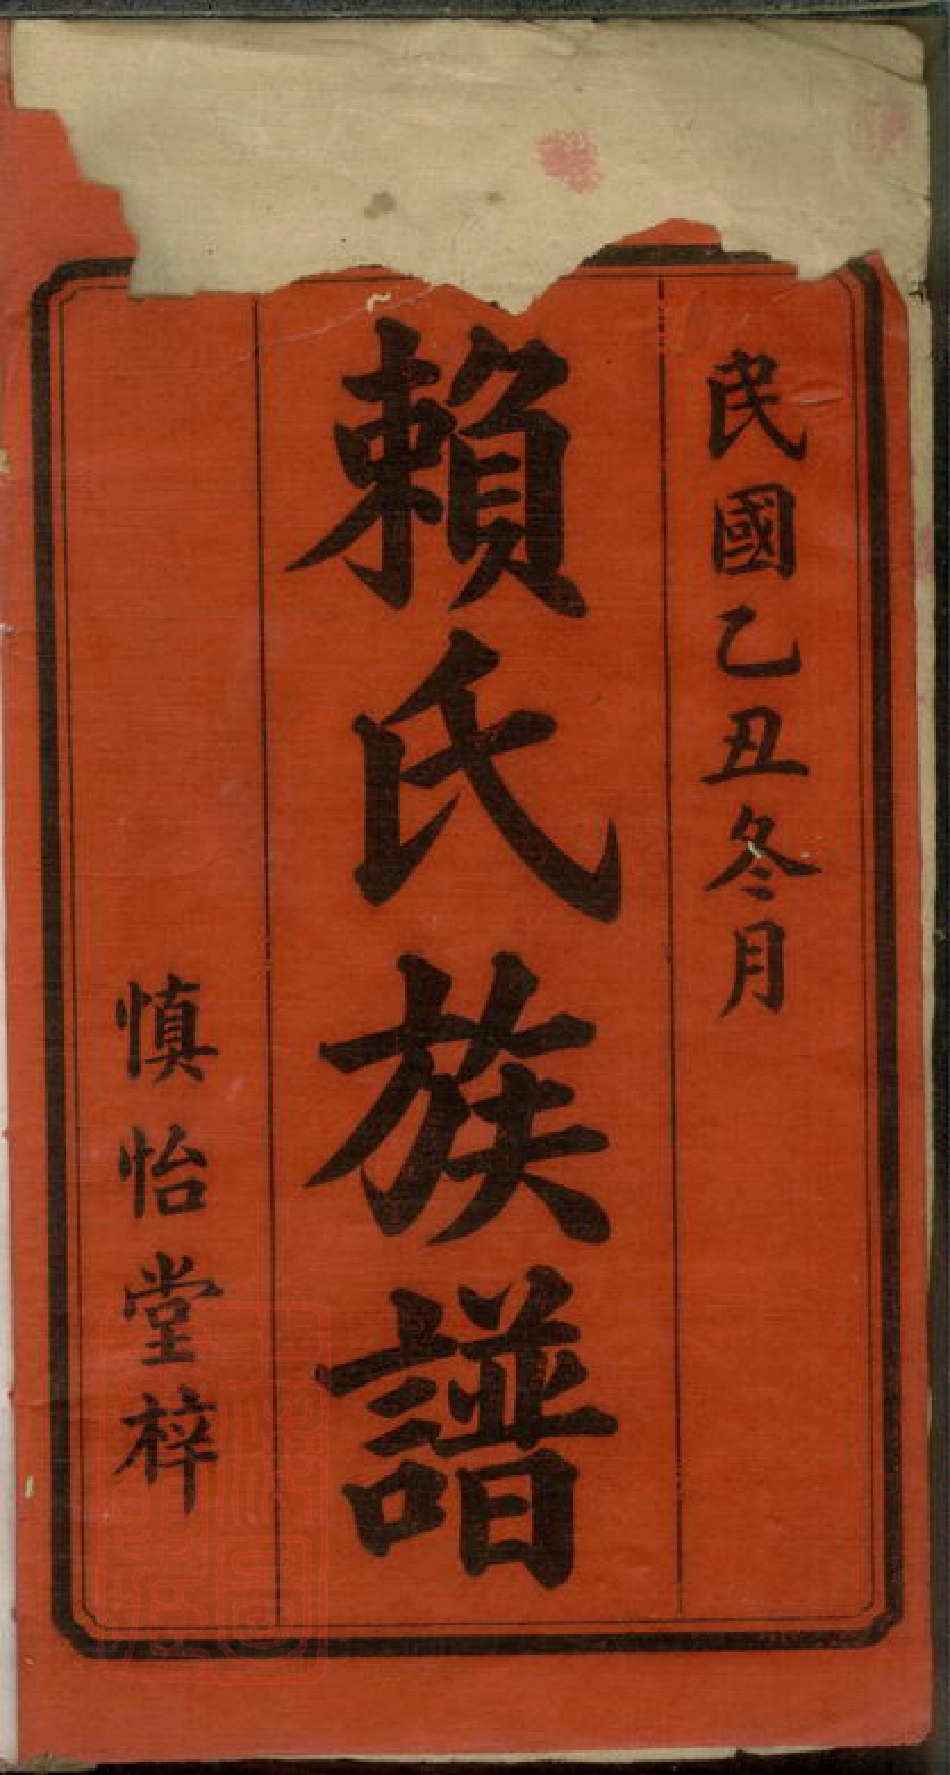 民國乙丑冬月
賴氏族譜
慎怡堂梓